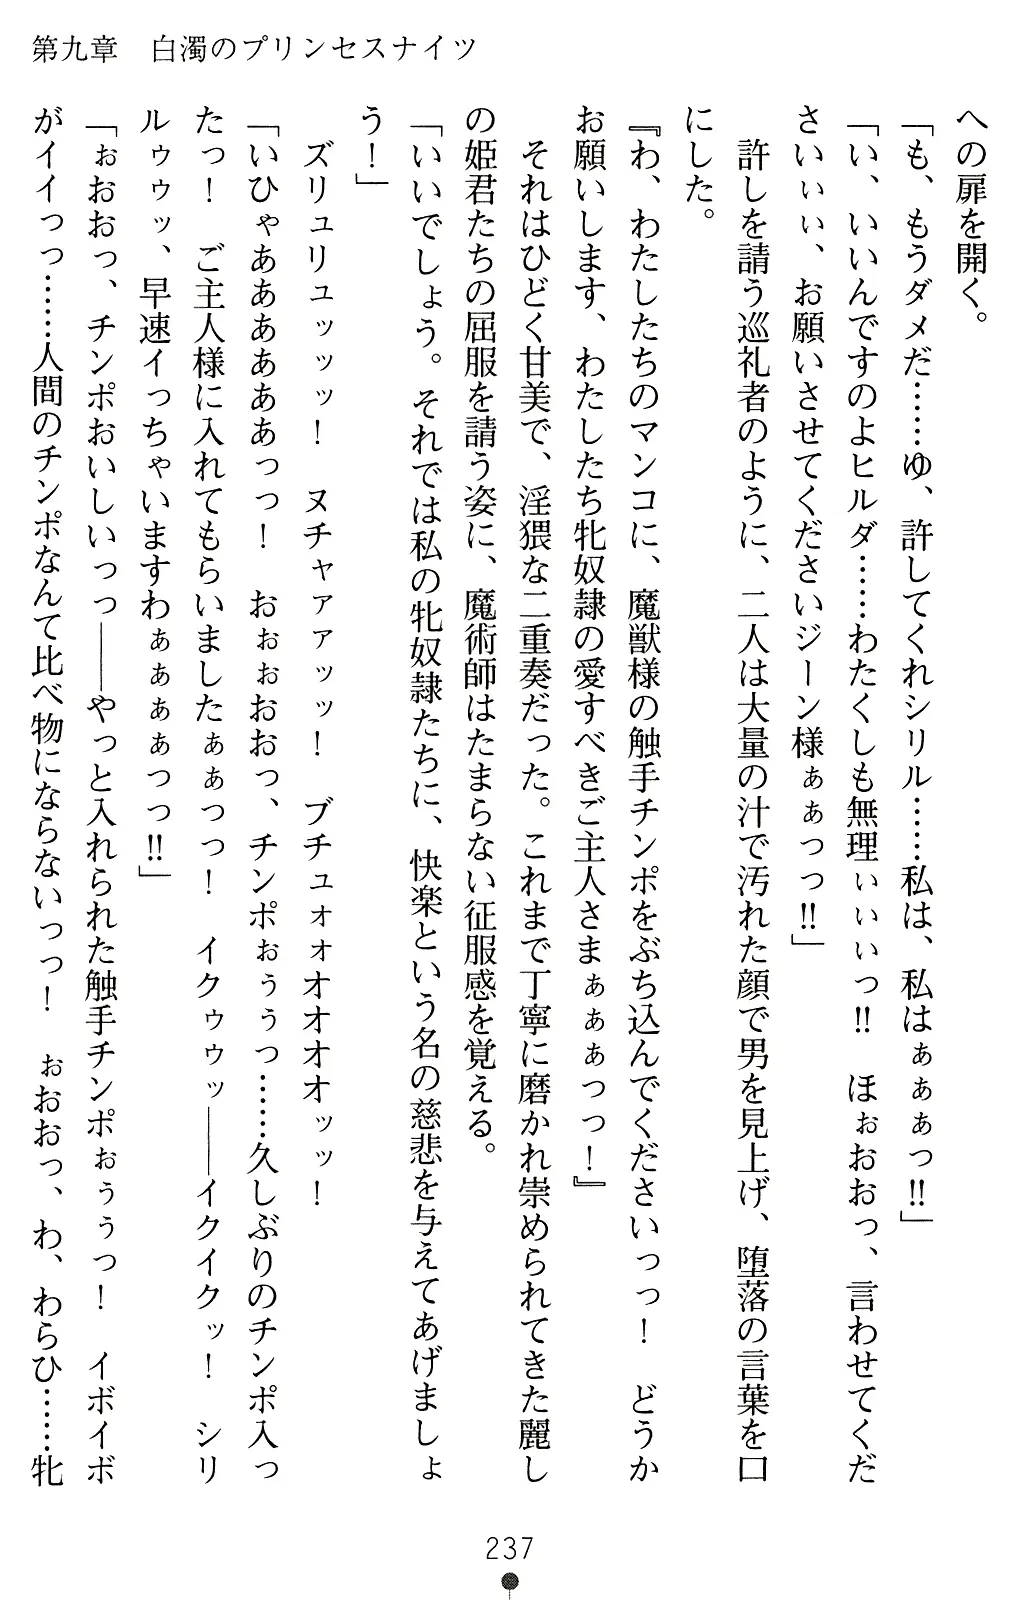 第九章　白濁のプリンセスナイツ
への扉を開く。
「も、もうダメだ……ゆ、許してくれシリル……私は、私はぁぁぁっ!!」
「い、いいんですのよヒルダ……わたくしも無理ぃぃぃっ!!　ほぉおおっ、言わせてくだ
さいぃぃ、お願いさせてくださいジーン様ぁぁっっ!!」
　許しを請う巡礼者のように、二人は大量の汁で汚れた顔で男を見上げ、堕落の言葉を口
にした。
『わ、わたしたちのマンコに、魔獣様の触手チンポをぶち込んでくださいっっ！　どうか
お願いします、わたしたち牝奴隷の愛すべきご主人さまぁぁぁっっ！』
　それはひどく甘美で、淫猥な二重奏だった。これまで丁寧に磨かれ崇められてきた麗し
の姫君たちの屈服を請う姿に、魔術師はたまらない征服感を覚える。
「いいでしょう。それでは私の牝奴隷たちに、快楽という名の慈悲を与えてあげましょ
う！」
　ズリュリュッッッ！　ヌチャァァッッ！　ブチュォォオオオオッッ！
「いひゃああああああっっ！　おぉぉおおっ、チンポぉぅぅっ……久しぶりのチンポ入っ
たっ！　ご主人様に入れてもらいましたぁぁっっ！　イクゥゥッ――イクイクッ！　シリ
ルゥゥッ、早速イっちゃいますわぁぁぁぁっっ!!」
「ぉおおっ、チンポおいしいっっ――やっと入れられた触手チンポぉぅぅっ！　イボイボ
がイイっっ……人間のチンポなんて比べ物にならないっっ！　ぉおおっ、わ、わらひ……牝
237